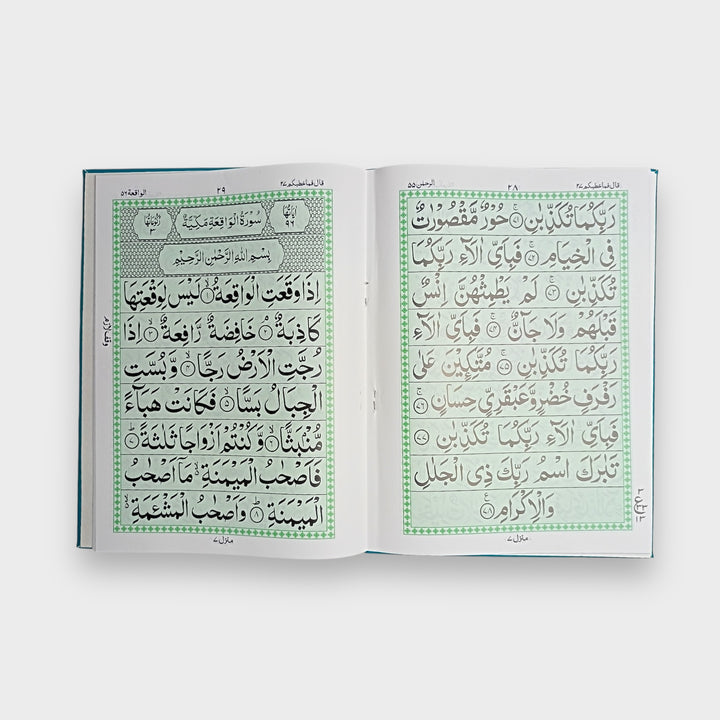 قال فما خطبكم ٢٧
٢٨
الرحمٰن ٥٥
رَبِّكُمَا تُكَذِّبٰنِ ﴿٧١﴾ حُوْرٌ مَّقْصُوْرٰتٌ
فِی الْخِيَامِ ﴿٧٢﴾ فَبِاَیِّ اٰلَآءِ رَبِّكُمَا
تُكَذِّبٰنِ ﴿٧٣﴾ لَمْ يَطْمِثْهُنَّ اِنْسٌ
قَبْلَهُمْ وَلَا جَآنٌّ ﴿٧٤﴾ فَبِاَیِّ اٰلَآءِ
رَبِّكُمَا تُكَذِّبٰنِ ﴿٧٥﴾ مُتَّكِـِٕيْنَ عَلٰی
رَفْرَفٍ خُضْرٍ وَّعَبْقَرِیٍّ حِسَانٍ ﴿٧٦﴾
فَبِاَیِّ اٰلَآءِ رَبِّكُمَا تُكَذِّبٰنِ ﴿٧٧﴾
تَبٰرَكَ اسْمُ رَبِّكَ ذِی الْجَلٰلِ
وَالْاِكْرَامِ ﴿٧٨﴾
منزل ٧
قال فما خطبكم ٢٧
٢٩
الواقعة ٥٦
اٰيَاتُهَا ٩٦
سُوْرَةُ الْوَاقِعَةِ مَكِّيَّةٌ
رُكُوْعَاتُهَا ٣
بِسْمِ اللهِ الرَّحْمٰنِ الرَّحِيْمِ
اِذَا وَقَعَتِ الْوَاقِعَةُ ﴿١﴾ لَيْسَ لِوَقْعَتِهَا
كَاذِبَةٌ ﴿٢﴾ خَافِضَةٌ رَّافِعَةٌ ﴿٣﴾ اِذَا
رُجَّتِ الْاَرْضُ رَجًّا ﴿٤﴾ وَّبُسَّتِ
الْجِبَالُ بَسًّا ﴿٥﴾ فَكَانَتْ هَبَآءً
مُّنْۢبَثًّا ﴿٦﴾ وَّكُنْتُمْ اَزْوَاجًا ثَلٰثَةً ﴿٧﴾
فَاَصْحٰبُ الْمَيْمَنَةِ مَاۤ اَصْحٰبُ
الْمَيْمَنَةِ ﴿٨﴾ وَاَصْحٰبُ الْمَشْـَٔمَةِ
وقف لازم
منزل ٧